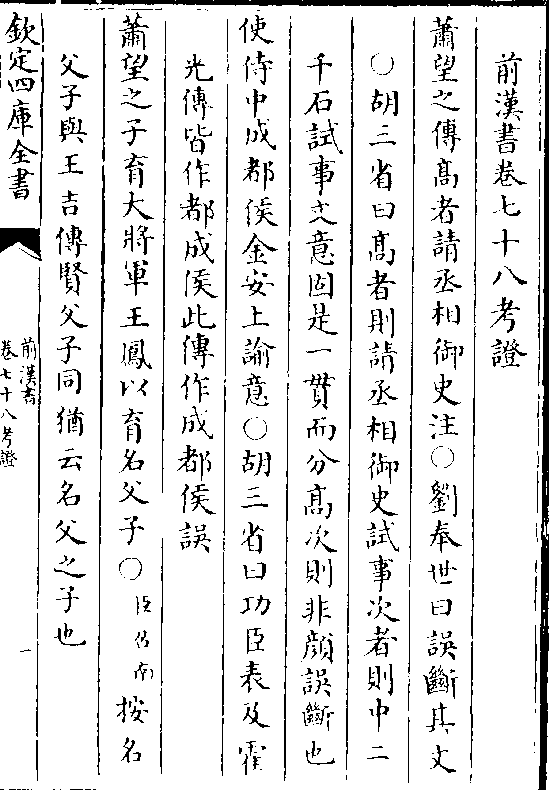 前漢書卷七十八考證
蕭望之傳髙者請丞相御史注○劉奉世曰誤斷其文
○胡三省曰髙者則請丞相御史試事次者則中二
千石試事文意固是一貫而分髙次則非顔誤斷也
使侍中成都侯金安上諭意○胡三省曰功臣表及霍
光傳皆作都成侯此傳作成都侯誤
蕭望之子育大將軍王鳳以育名父子○臣召南按名
父子與王吉傳賢父子同猶云名父之子也
欽定四庫全書
前漢書
卷七十八考證
一